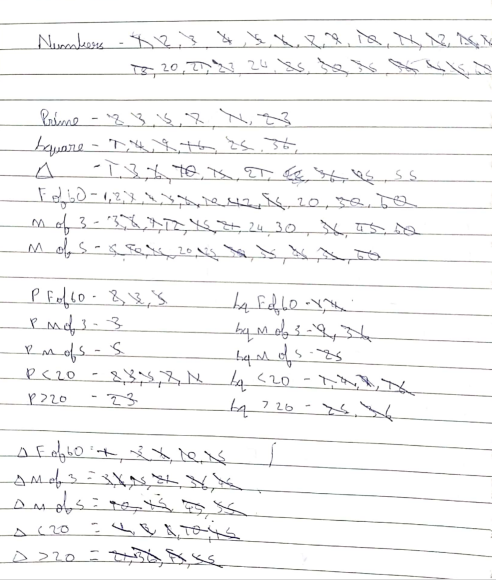 Numbers - 1, 2, 3, 4, 5, 6, 8, 9, 10, 11, 12, 15, 16
15, 20, 21, 23, 24, 25, 30, 36,
Prime - 2, 3, 5, 7, 11, 23
Square - 1, 4, 9, 16, 25, 36,
Δ - 1, 3, 6, 10, 15, 21, 36, 45, 55
F of 60 - 1, 2, 3, 4, 5, 6, 10, 12, 15, 20, 30, 60
M of 3 - 3, 6, 9, 12, 15, 21, 24, 30, 36, 45, 60
M of 5 - 5, 10, 15, 20, 25,
P F of 60 - 2, 3, 5
Sq F of 60 - 1, 4
P M of 3 - 3
Sq M of 3 - 9, 36
P M of 5 - 5
Sq M of 5 - 25
P < 20 - 2, 3, 5, 7, 11
Sq < 20 - 1, 4, 9, 16
P > 20 - 23
Sq > 20 - 25, 36
Δ F of 60 = 1, 3, 6, 10, 15
Δ M of 3 = 3, 6, 15, 21, 36, 45
Δ M of 5 = 10, 15, 45, 55
Δ < 20 = 1, 3, 6, 10, 15
Δ > 20 = 21, 36, 45, 55